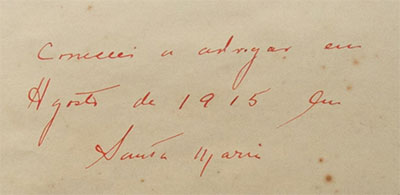 Comecei a advogar em
Agosto de 1915 em
Santa Maria